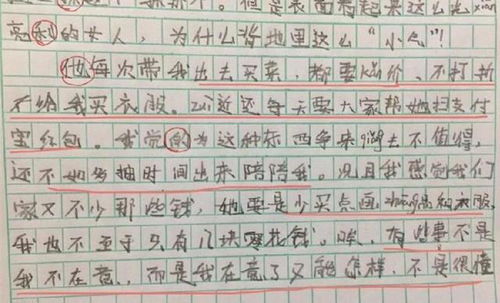 但是表面看起来这么光xian
亮利的女人，为什么背地里这么“小气”！
他每次带我出去买菜，都要kan价，不打折
不给我买衣服。zui近还每天要大家帮她扫支付
宝红包。我觉的为这种东西争来qiang去不值得，
还不如多抽时间出来陪陪我。况且我感觉我们
家又不少那些钱，她要是少买点衣服，
我也不至于只有几块零花钱。唉，有些事不是
我不在意，而是我在意了又能怎样，不是很懂